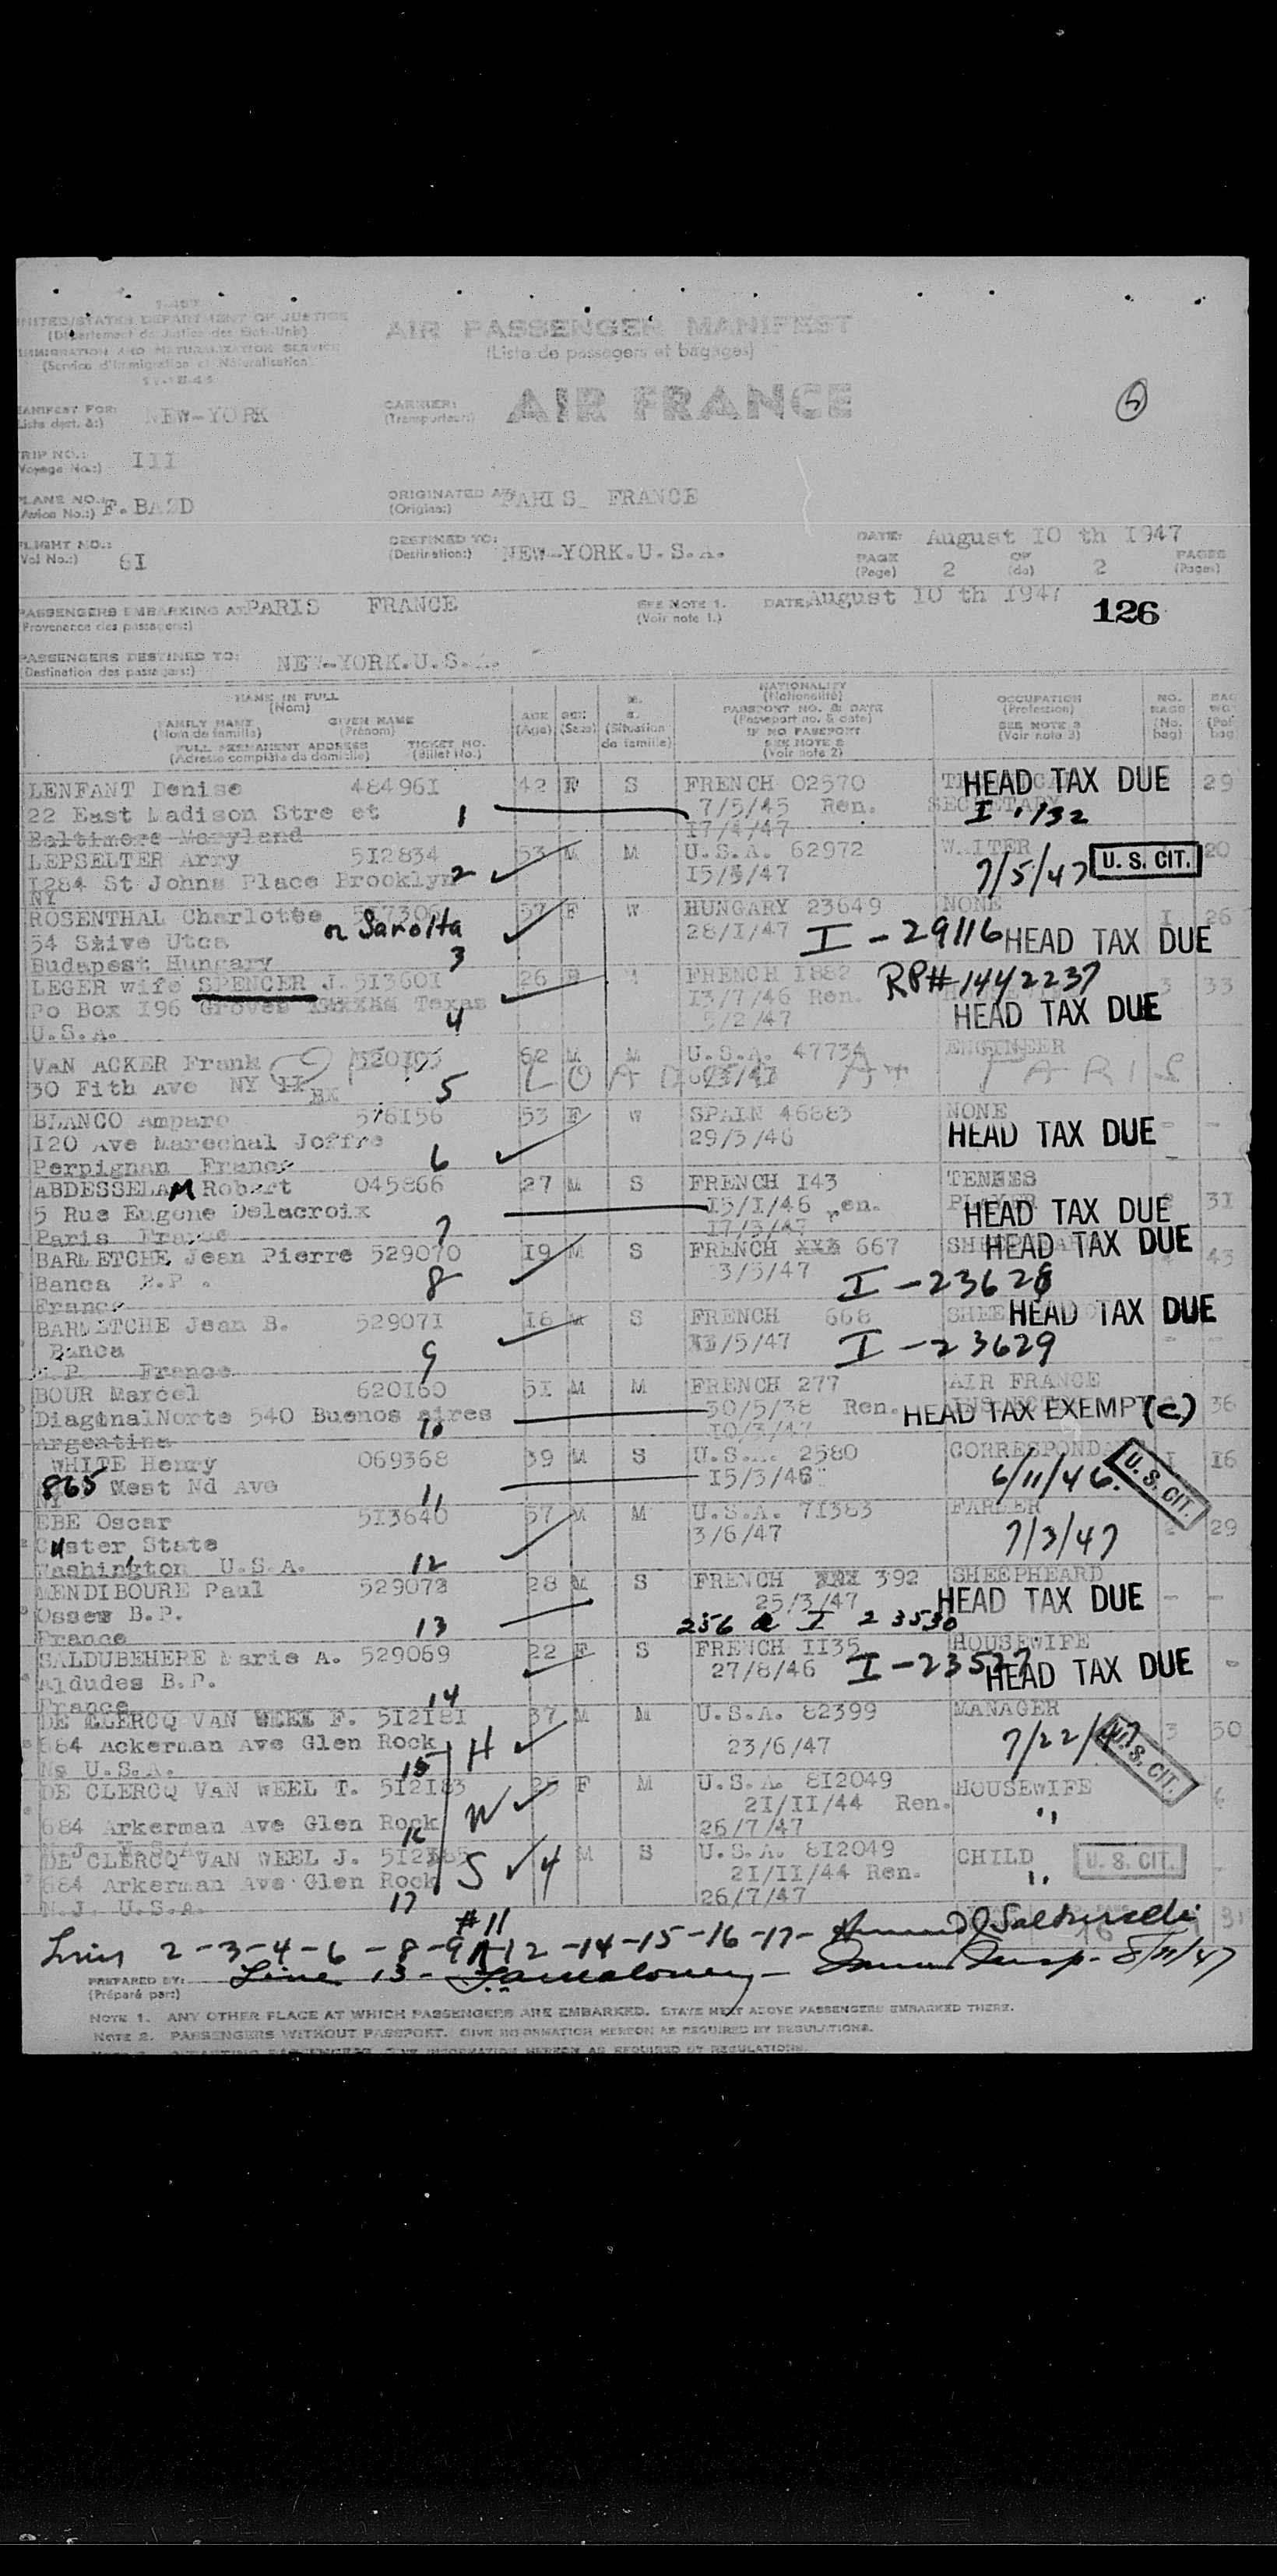 UNITED STATES DEPARTMENT OF JUSTICE
(Département de Justice des Etats-Unis)
IMMIGRATION AND NATURALIZATION SERVICE
(Service d'Immigration et Naturalisation)
AIR PASSENGER MANIFEST
(Liste de passagers et bagages)
MANIFEST FOR: NEW-YORK
(Liste dest. à:)
CARRIER: AIR FRANCE
(Transporteur:)
TRIP NO.: III
(Voyage No.:)
PLANE NO.: F.BAZD
(Avion No.:)
ORIGINATED AT: PARIS FRANCE
(Origine:)
FLIGHT NO.: 6I
(Vol No.:)
DESTINED TO: NEW-YORK.U.S.A.
(Destination:)
DATE: August IO th I947
PAGE 2 OF 2 PAGES
(Page) (de) (Pages)
PASSENGERS EMBARKING AT: PARIS FRANCE
(Provenance des passagers:)
SEE NOTE 1.
(Voir note 1.)
DATE: August IO th I947
126
PASSENGERS DESTINED TO: NEW-YORK.U.S.A.
(Destination des passagers:)
NAME IN FULL
(Nom)
FAMILY NAME GIVEN NAME
(Nom de famille) (Prénom)
FULL PERMANENT ADDRESS TICKET NO.
(Adresse complète du domicile) (Billet No.)
AGE
(Age)
SEX
(Sexe)
(Situation de famille)
NATIONALITY
(Nationalité)
PASSPORT NO. & DATE
(Passeport no. & date)
IF NO PASSPORT
SEE NOTE 2
(Voir note 2)
OCCUPATION
(Profession)
SEE NOTE 3
(Voir note 3)
NO. BAGS
(No. bag)
LENFANT Denise 48496I 42 F S FRENCH 02570 HEAD TAX DUE 29
22 East Madison Stre et 1 7/5/45 Ren. SECRETARY
Baltimore Maryland I7/4/47
LEPSELTER Arry 5I2834 53 M M U.S.A. 62972 WAITER U. S. CIT. 20
I284 St Johns Place Brooklyn 2 I5/5/47 7/5/47
NY
ROSENTHAL Charlotte or Sarolta 57 F W HUNGARY 23649 NONE I 26
54 Stive Utca 28/I/47 I-29116 HEAD TAX DUE
Budapest Hungary 3
LEGER wife SPENCER J. 5I360I 26 FRENCH I882 RP# 1442237 3 33
Po Box I96 Groves Texas 4 I3/7/46 Ren. HEAD TAX DUE
U.S.A. 5/2/47
VAN ACKER Frank 62 M M U.S.A. 4773A ENGINEER
30 Fith Ave NY BK 5 LOAD AT PARIS
BLANCO Amparo 576I56 53 F W SPAIN 46883 NONE - -
I20 Ave Marechal Joffre 29/5/46 HEAD TAX DUE
Perpignan France 6
ABDESSELAM Robert 045866 27 M S FRENCH I43 TENNES 3I
5 Rue Eugene Delacroix I5/I/46 PLAYER HEAD TAX DUE
Paris France 7 I7/3/47
BARNETCHE Jean Pierre 529070 I9 M S FRENCH 667 HEAD TAX DUE 43
Banca B.P. 8 3/5/47 I-23628
France
BARNETCHE Jean B. 52907I I8 M S FRENCH 668 HEAD TAX DUE
Banca 9 /5/47 I-23629 - -
B.P. France
BOUR Marcel 620I60 5I M M FRENCH 277 AIR FRANCE
DiagonalNorte 540 Buenos Aires 10 30/5/38 Ren. HEAD TAX EXEMPT (c) 36
Argentina I0/3/47
WHITE Henry 069368 39 M S U.S.A. 2580 CORRESPONDA I I6
865 West Nd Ave 11 I5/3/46 6/11/46. U. S. CIT.
NY
EBE Oscar 5I3640 57 M M U.S.A. 7I383 FARMER 2 29
Custer State 3/6/47 7/3/47
Washington U.S.A. 12
MENDIBOURE Paul 529072 28 M S FRENCH 392 SHEEPHEARD
Osses B.P. 25/3/47 HEAD TAX DUE - -
France 13 256 a I 23530
SALDUBEHERE Marie A. 529069 22 F S FRENCH II35 HOUSEWIFE
Aldudes B.P. 27/8/46 I-23527 HEAD TAX DUE -
France 14
DE CLERCQ VAN WEEL F. 5I2I8I 37 M M U.S.A. 82399 MANAGER 3 50
684 Ackerman Ave Glen Rock H 23/6/47 7/22/47 U. S. CIT.
U.S.A. 15
DE CLERCQ VAN WEEL T. 5I2I83 F M U.S.A. 8I2049 HOUSEWIFE 6
684 Arkerman Ave Glen Rock W 2I/II/44 Ren. "
N.J. U.S.A. 16 26/7/47
DE CLERCQ VAN WEEL J. S 4 M S U.S.A. 8I2049 CHILD U. S. CIT.
684 Arkerman Ave Glen Rock 2I/II/44 Ren. "
N.J. U.S.A. 17 26/7/47
#11
Lines 2-3-4-6-8-9-12-14-15-16-17-
PREPARED BY: Line 13- 8/11/47
(Préparé par:)
NOTE 1. ANY OTHER PLACE AT WHICH PASSENGERS ARE EMBARKED. STATE NEXT ABOVE PASSENGERS EMBARKED THERE.
NOTE 2. PASSENGERS WITHOUT PASSPORT. GIVE INFORMATION HEREON AS REQUIRED BY REGULATIONS.